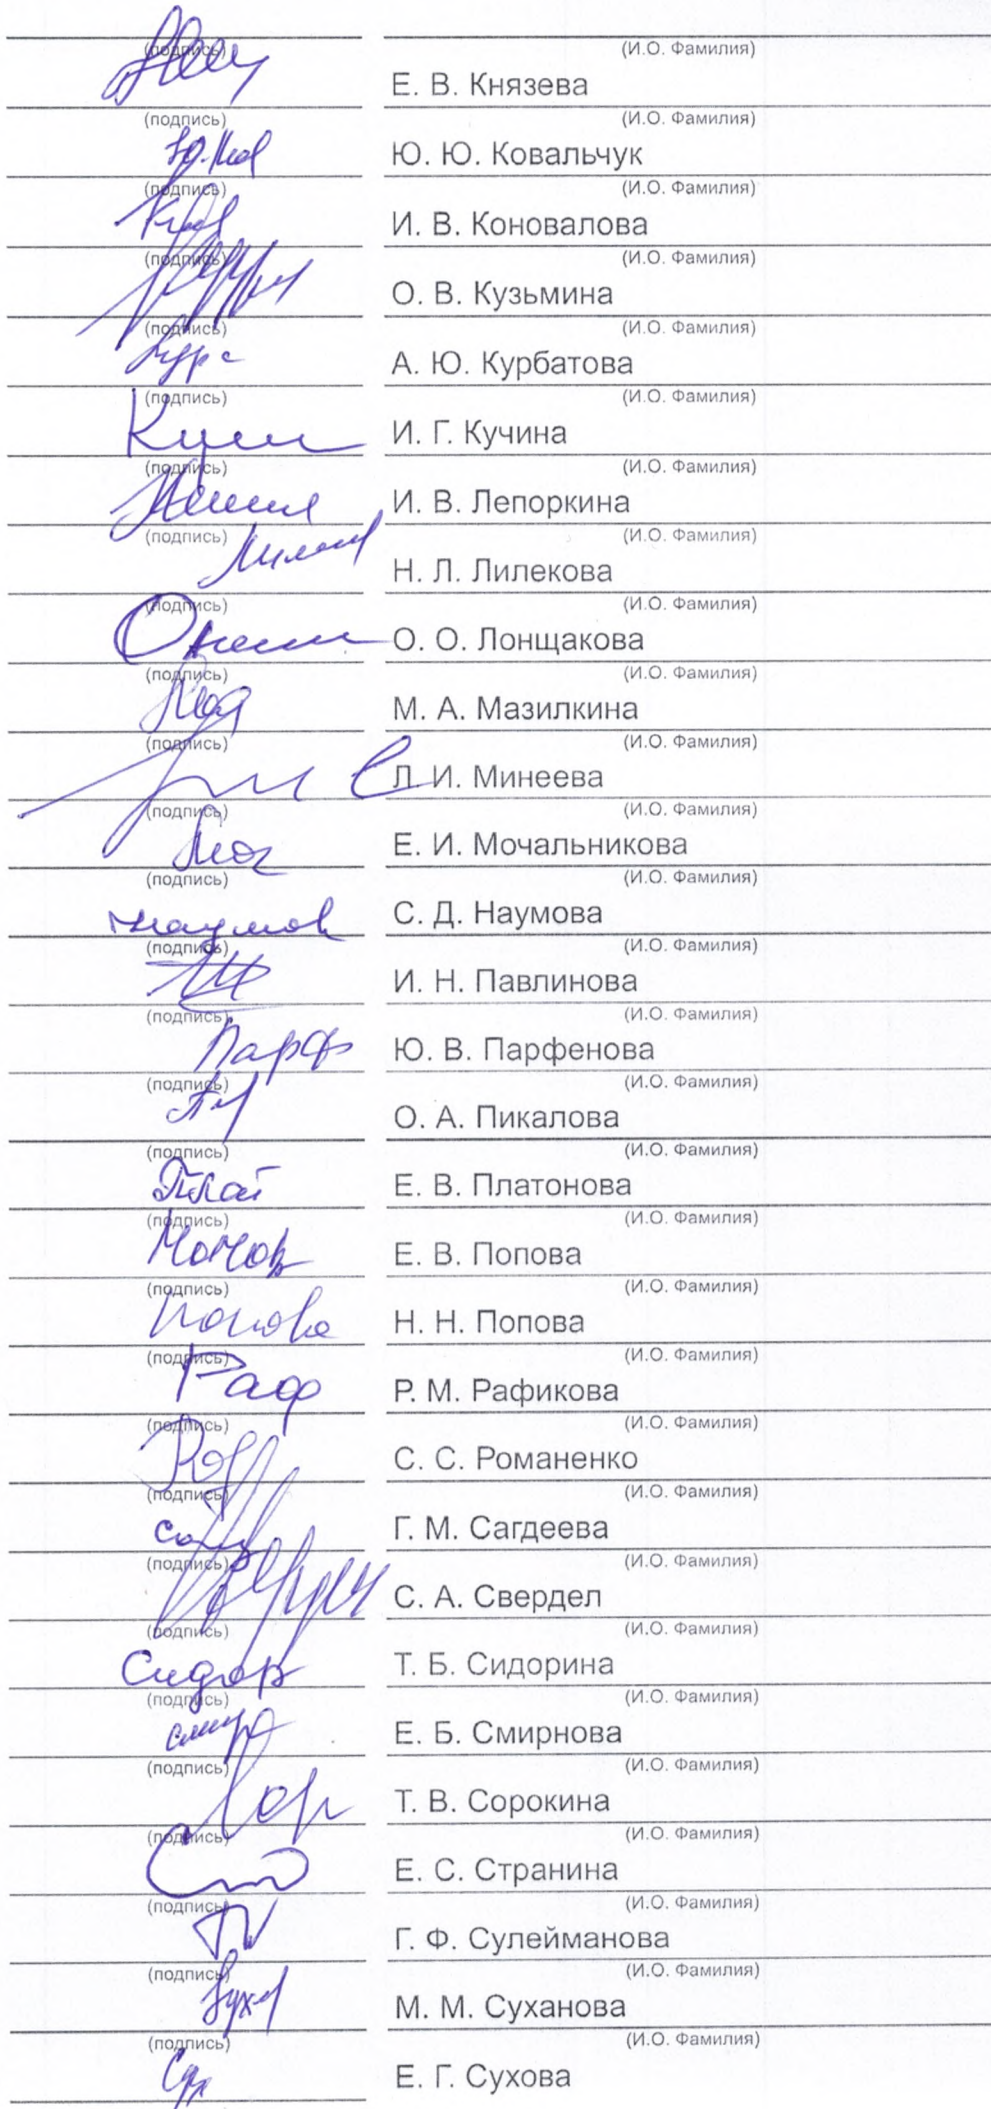 (подпись) (И.О. Фамилия)
Е. В. Князева
(подпись) (И.О. Фамилия)
Ю. Ю. Ковальчук
(подпись) (И.О. Фамилия)
И. В. Коновалова
(подпись) (И.О. Фамилия)
О. В. Кузьмина
(подпись) (И.О. Фамилия)
А. Ю. Курбатова
(подпись) (И.О. Фамилия)
И. Г. Кучина
(подпись) (И.О. Фамилия)
И. В. Лепоркина
(подпись) (И.О. Фамилия)
Н. Л. Лилекова
(подпись) (И.О. Фамилия)
О. О. Лонщакова
(подпись) (И.О. Фамилия)
М. А. Мазилкина
(подпись) (И.О. Фамилия)
Л. И. Минеева
(подпись) (И.О. Фамилия)
Е. И. Мочальникова
(подпись) (И.О. Фамилия)
С. Д. Наумова
(подпись) (И.О. Фамилия)
И. Н. Павлинова
(подпись) (И.О. Фамилия)
Парф Ю. В. Парфенова
(подпись) (И.О. Фамилия)
О. А. Пикалова
(подпись) (И.О. Фамилия)
Плат Е. В. Платонова
(подпись) (И.О. Фамилия)
Е. В. Попова
(подпись) (И.О. Фамилия)
Попова Н. Н. Попова
(подпись) (И.О. Фамилия)
Раф Р. М. Рафикова
(подпись) (И.О. Фамилия)
С. С. Романенко
(подпись) (И.О. Фамилия)
Г. М. Сагдеева
(подпись) (И.О. Фамилия)
С. А. Свердел
(подпись) (И.О. Фамилия)
Сидор Т. Б. Сидорина
(подпись) (И.О. Фамилия)
Е. Б. Смирнова
(подпись) (И.О. Фамилия)
Т. В. Сорокина
(подпись) (И.О. Фамилия)
Е. С. Странина
(подпись) (И.О. Фамилия)
Г. Ф. Сулейманова
(подпись) (И.О. Фамилия)
М. М. Суханова
(подпись) (И.О. Фамилия)
Е. Г. Сухова